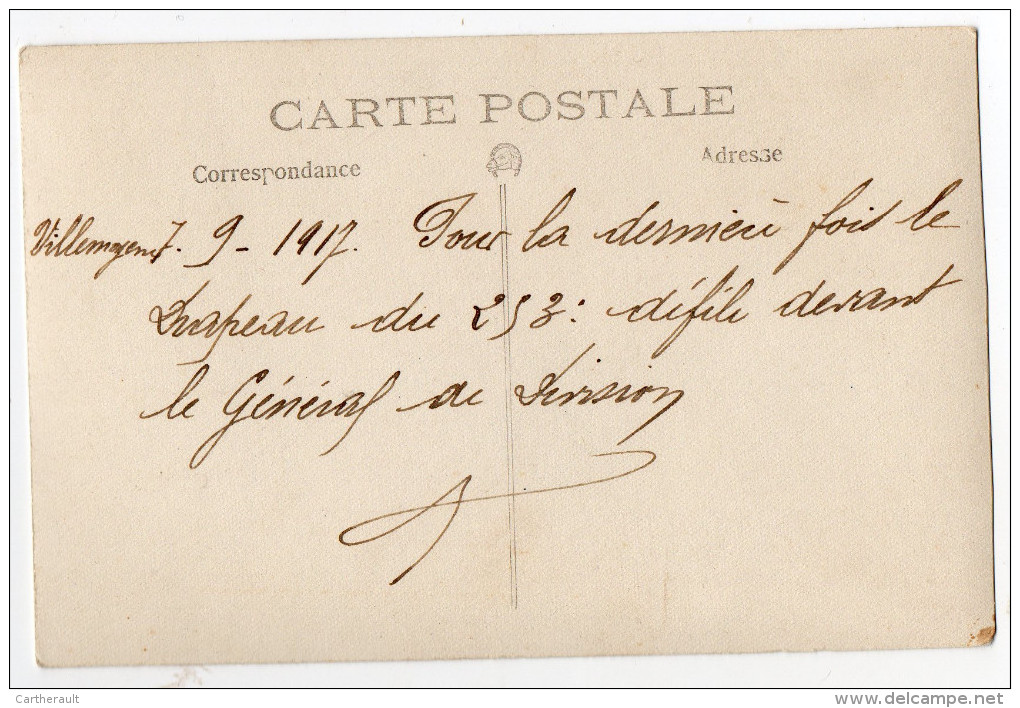 CARTE POSTALE
Correspondance
Adresse
Villemoyenne 7. 9 - 1917. Pour la dernière fois le
Drapeau du 253: défile devant
le Général de Division
Cartherault
www.delcampe.net